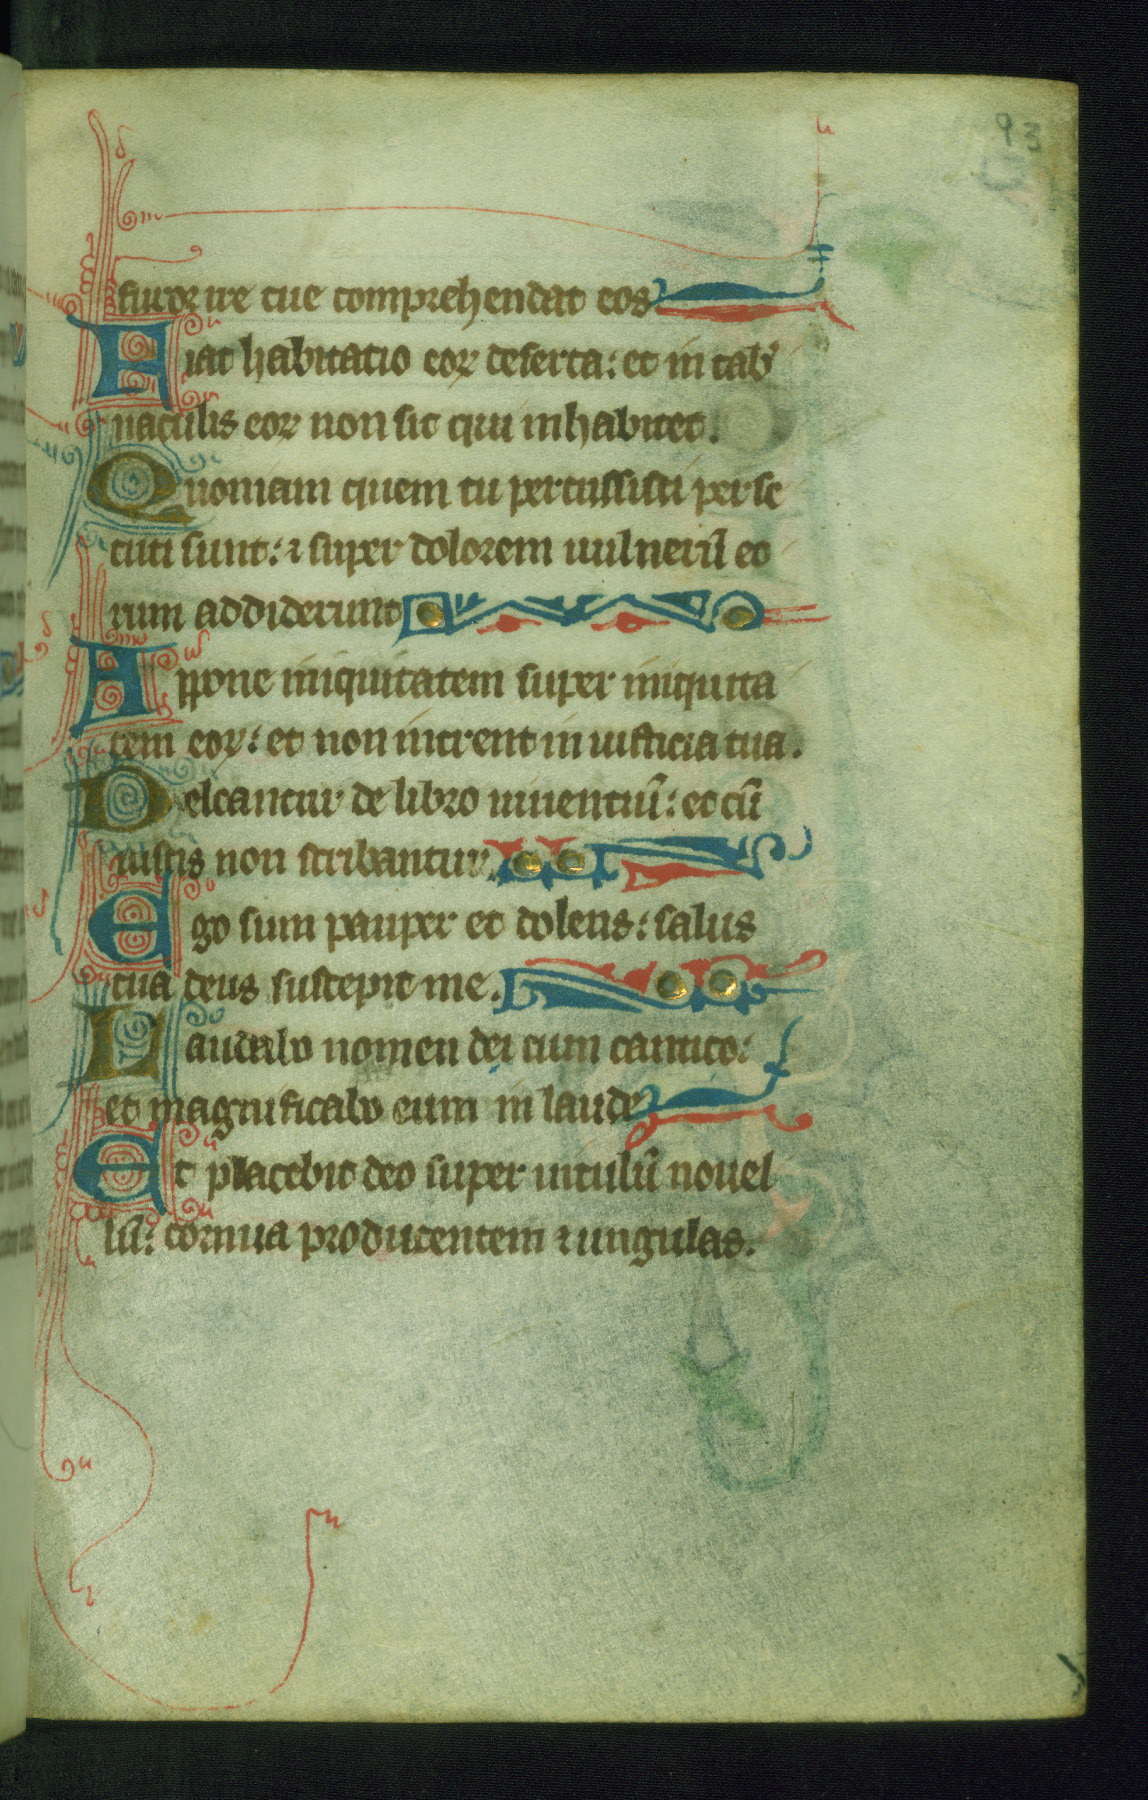 93
furor ire tue comprehendat eos
Fiat habitatio eoꝝ deserta: et in tab̾
naculis eoꝝ non sit qui inhabitet.
Quoniam quem tu percussisti perse
cuti sunt: ⁊ super dolorem uulnerū eo
rum addiderunt
Appone iniquitatem super iniquita
tem eoꝝ: et non intrent in iusticia tua.
Deleantur de libro uiuentiū: et cū
iustis non scribantur.
Ego sum pauper et dolens: salus
tua deus suscepit me.
Laudabo nomen dei cum cantico:
et magnificabo eum in laude
Et placebit deo super uitulū nouel
lū: cornua producentem ⁊ ungulas.